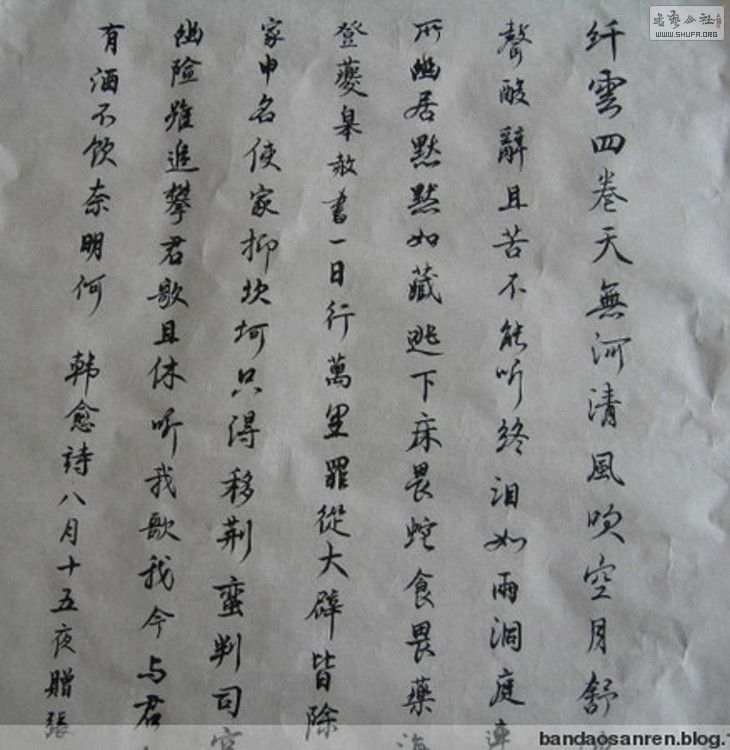 纤雲四卷天無河清風吹空月舒
聲酸辭且苦不能听终泪如雨洞庭連
所幽居默默如藏逃下床畏蛇食畏藥海
登夔皋赦書一日行萬里罪從大辟皆除
家申名使家抑坎坷只得移荆蛮判司官
幽險难追攀君歌且休听我歌我今与君
有酒不饮奈明何 韩愈詩八月十五夜贈張
書藝公社
WWW.SHUFA.ORG
bandaosanren.blog.